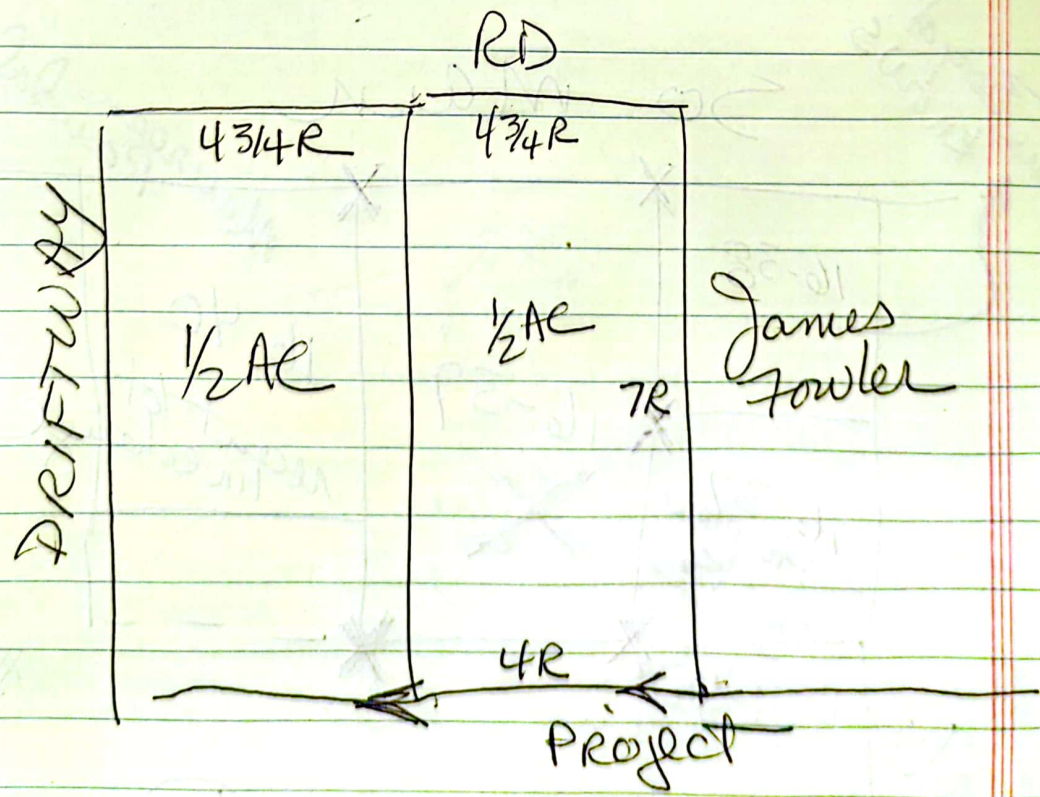 RD
4 3/4 R
4 3/4 R
DRIFTWAY
1/2 AC
1/2 AC
7R
James
Fowler
4R
PROject